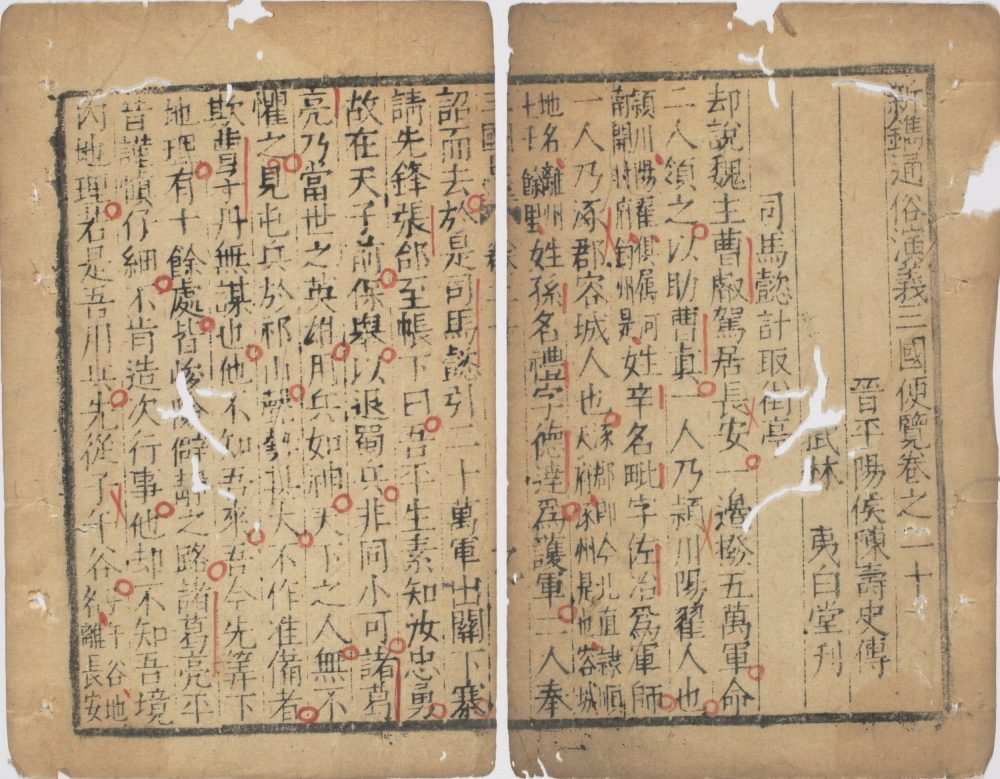 新鐫通俗演義三國便覽卷之二十
晉平陽侯陳壽史傳
武林 夷白堂刊
司馬懿計取街亭
却說魏主曹叡駕居長安一邊撥五萬軍命
二人須之以助曹真一人乃潁川陽翟人也
潁川陽翟俱属河南開封府鈞州是姓辛名毗字佐治爲軍師
一人乃涿郡容城人也涿郡即今北直隸順天府涿州是也容城
地名離州七十餘里姓孫名禮字德達爲護軍二人奉
三國 卷二十
詔而去於是司馬懿引二十萬軍出關下寨
請先鋒張郃至帳下曰吾平生素知汝忠勇
故在天子前保舉以退蜀兵非同小可諸葛
亮乃當世之英雄用兵如神天下之人無不
懼之見屯兵於祁山 大不作准備者
欺曹子丹無謀也他不知吾來吾今先筭下
地理有十餘處皆峻險僻靜之路諸葛亮平
昔謹慎仔細不肯造次行事他却不知吾境
內地理若是吾用兵先從子午谷子午谷地名離長安